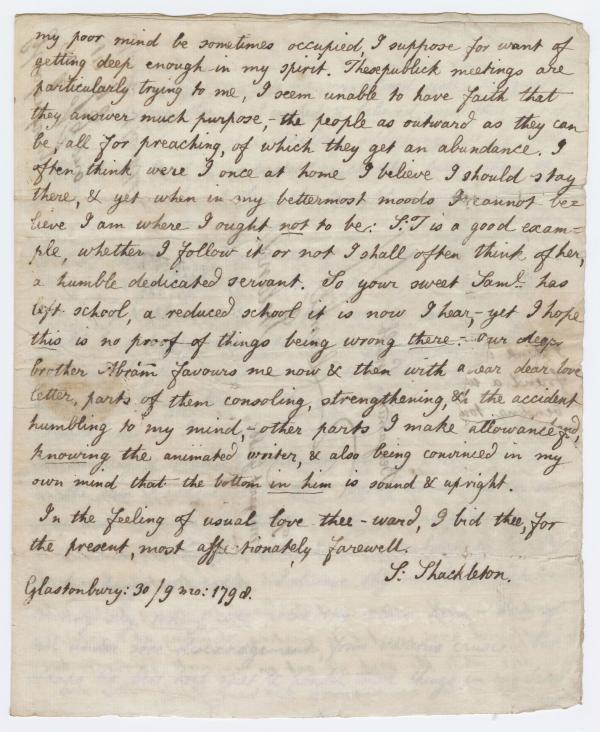 my poor mind be sometimes occupied, I suppose for want of
getting deep enough in my spirit. These publick meetings are
particularly trying to me, I seem unable to have faith that
they answer much purpose,- the people as outward as they can
be, all for preaching, of which they get an abundance. I
often think were I once at home I believe I should stay
there, & yet when in my bettermost moods I cannot be=
lieve I am where I ought not to be: S:T is a good exam-
ple, whether I follow it or not I shall often think of her,
a humble dedicated servant. So your sweet Saml. has
left school, a reduced school it is now I hear,- yet I hope
this is no proof of things being wrong there:- our
brother Abram favours me now & then with a dear love
letter, parts of them consoling, strengthening, & the accident
humbling to my mind,- other parts I make allowance
knowing the animated writer, & also being convinced in my
own mind that the bottom in him is sound & upright.
In the feeling of usual love thee-ward, I bid thee, for
the present, most affectionately farewell.
S: Shackleton.
Glastonbury: 30/9 mo: 1798.